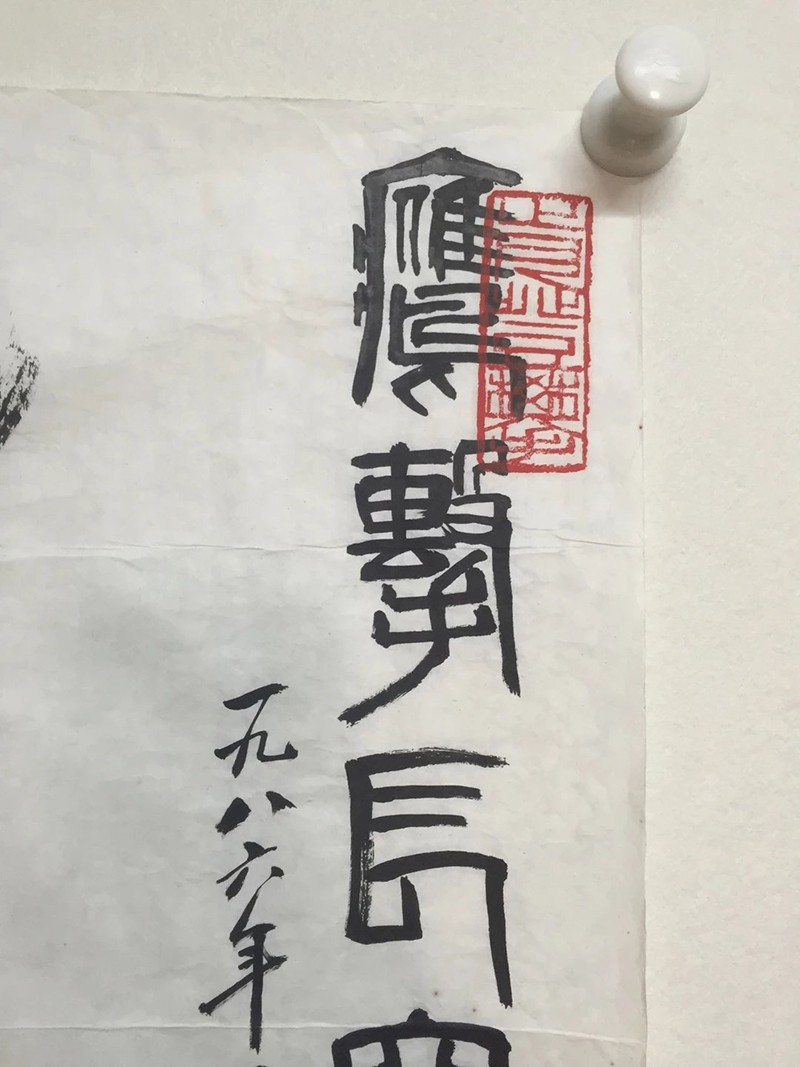 鷹擊長
一九八六年